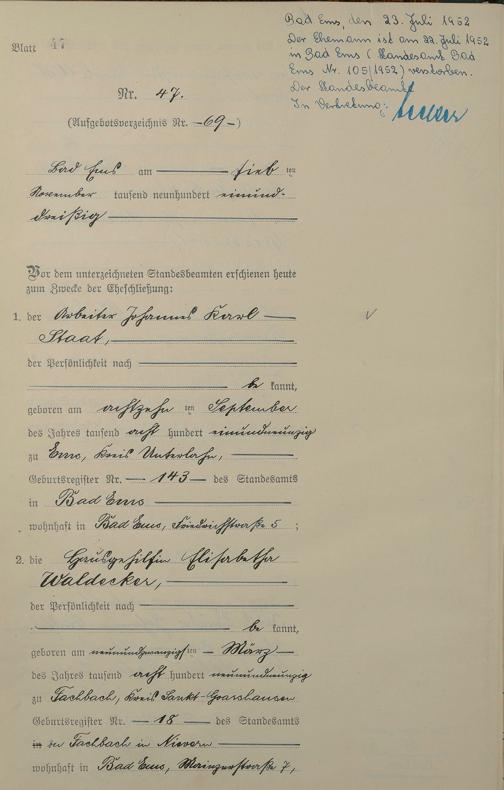 Bad Ems, den 23. Juli 1952
Der Ehemann ist am 22. Juli 1952
in Bad Ems (Standesamt Bad
Ems Nr. 105/1952) verstorben.
Der Standesbeamte
In Vertretung:
Blatt 47
Nr. 47.
(Aufgebotsverzeichnis Nr. -69-)
Bad Ems am sieb ten
November tausend neunhundert einund-
dreißig
Vor dem unterzeichneten Standesbeamten erschienen heute
zum Zwecke der Eheschließung:
1. der Arbeiter Johannes Karl
Staat,
der Persönlichkeit nach
be kannt,
geboren am achtzehn ten September
des Jahres tausend acht hundert einundneunzig
zu Ems, Kreis Unterlahn,
Geburtsregister Nr. 143 des Standesamts
in Bad Ems
wohnhaft in Bad Ems, Friedrichstraße 5 ;
2. die Hausgehilfin Elisabetha
Waldecker,
der Persönlichkeit nach
be kannt,
geboren am neunundzwanzigs ten März
des Jahres tausend acht hundert neunundneunzig
zu Fachbach, Kreis Sankt-Goarshausen
Geburtsregister Nr. 18 des Standesamts
in Fachbach in Nievern
wohnhaft in Bad Ems, Mainzerstraße 7,